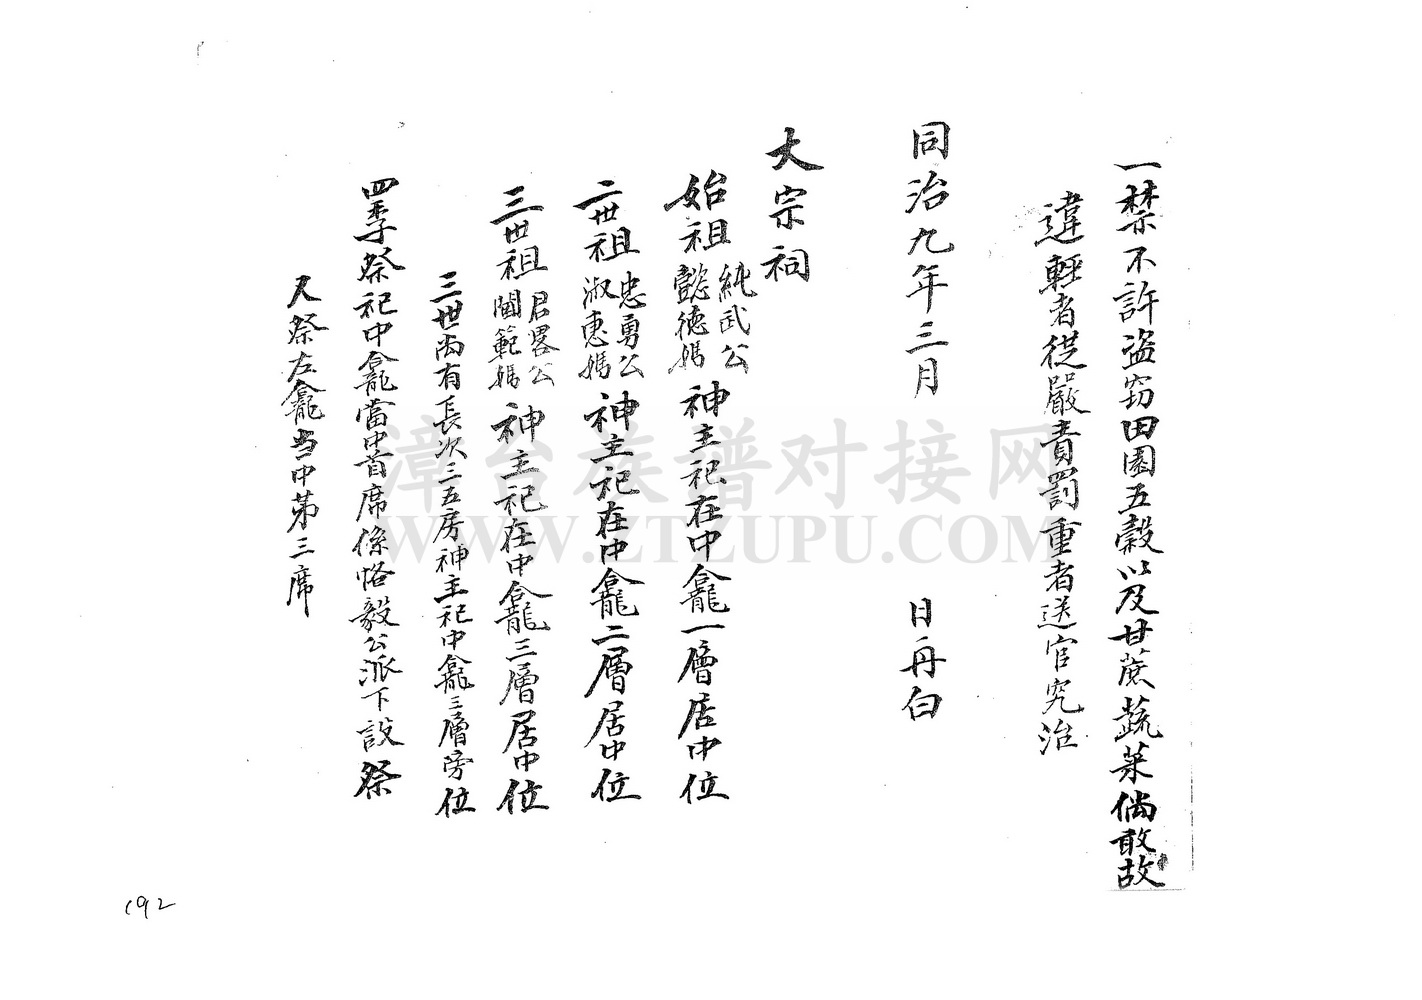 一禁不許盜窃田園五穀以及甘蔗蔬菜倘敢故
違輕者從嚴責罰重者送官究治
同治九年三月　　日再白
大宗祠
始祖純武公懿德媽神主祀在中龕一層居中位
二世祖忠勇公淑惠媽神主祀在中龕二層居中位
三世祖君畧公閫範媽神主祀在中龕三層居中位
三世尚有長次三五房神主祀中龕三層旁位
四季祭祀中龕當中首席係恪毅公派下設祭
又祭左龕当中第三席
192
漳台族谱对接网
WWW.ZTZUPU.COM